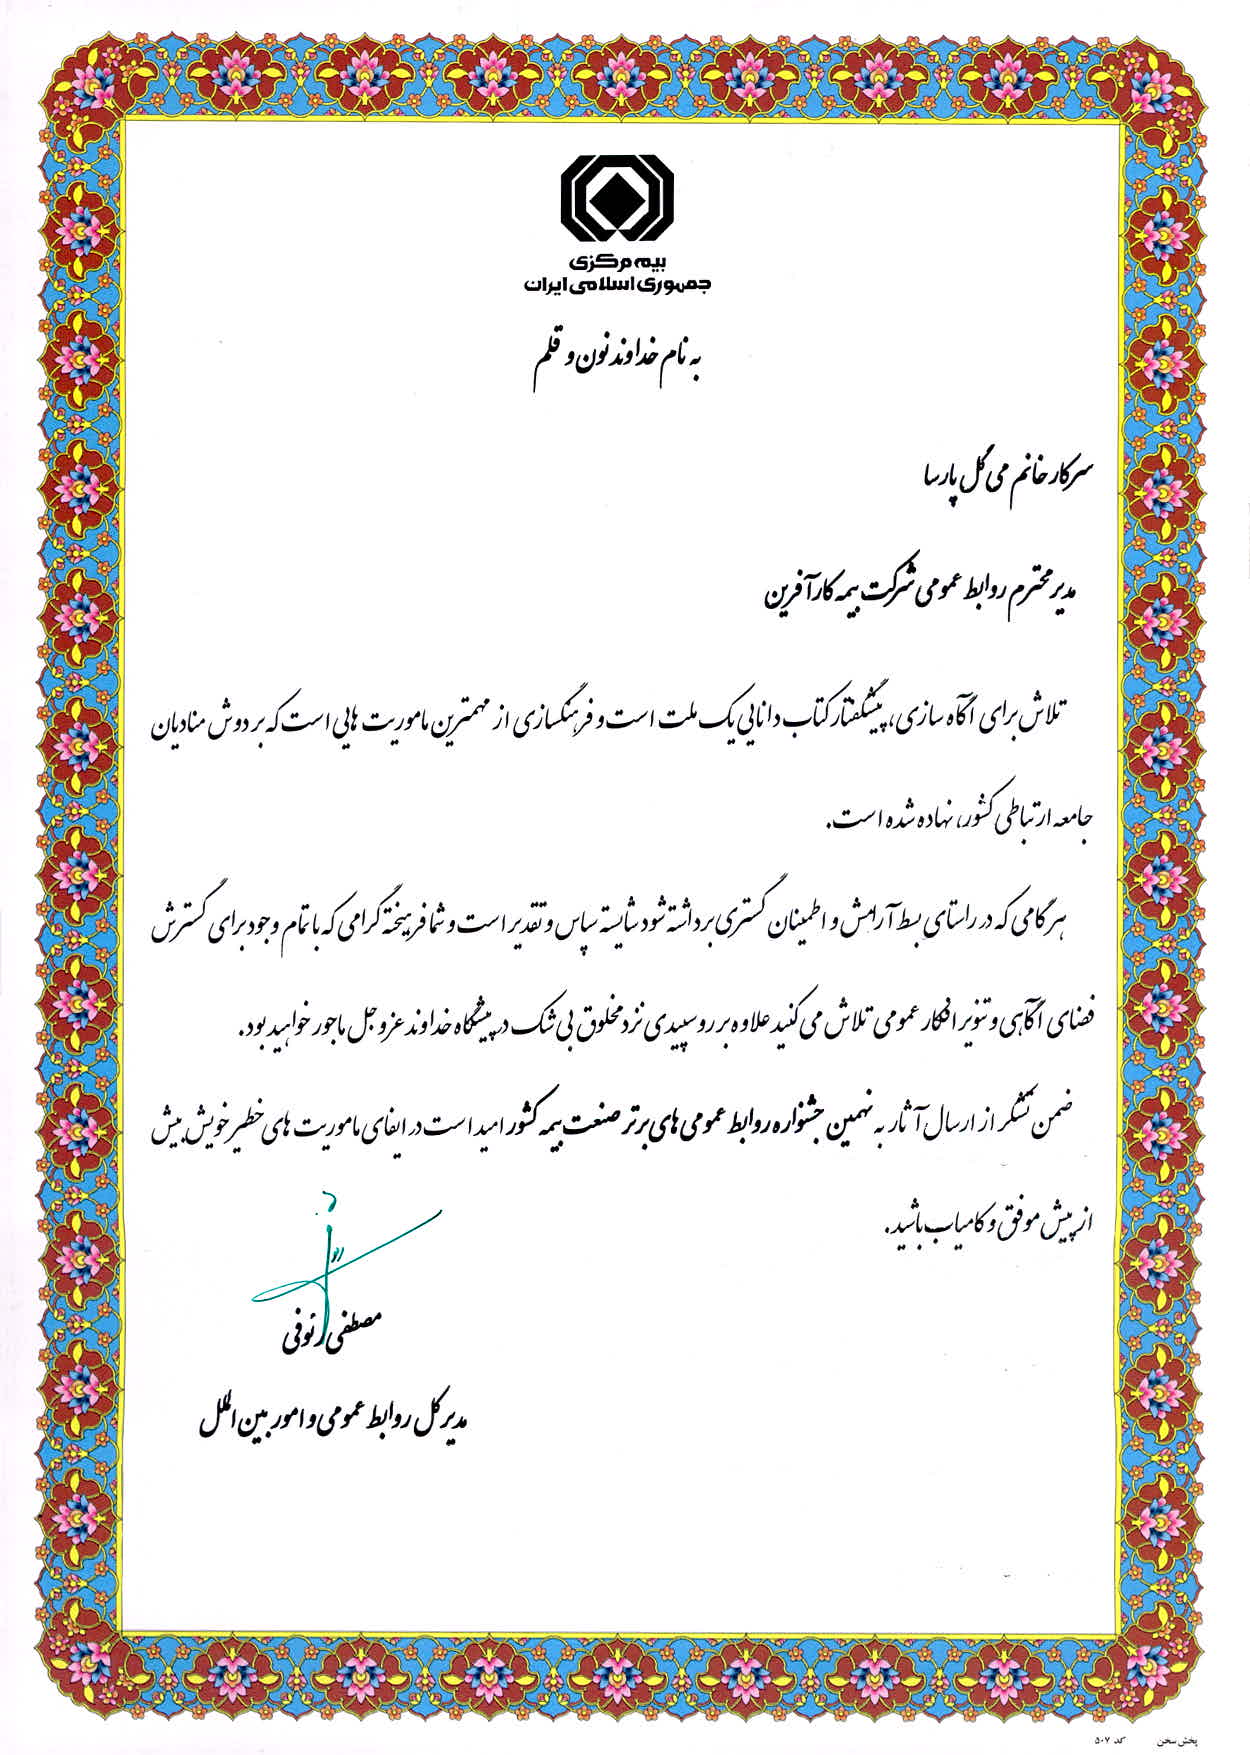 بیمه مرکزی
جمهوری اسلامی ایران
به نام خداوند نون و قلم
سرکار خانم می گل پارسا
مدیر محترم روابط عمومی شرکت بیمه کارآفرین
تلاش برای آگاه سازی، پیشگفتار کتاب دانایی یک ملت است و فرهنگسازی از مهمترین ماموریت هایی است که بر دوش منادیان
جامعه ارتباطی کشور، نهاده شده است.
هر گامی که در راستای بسط آرامش و اطمینان گستری برداشته شود شایسته سپاس و تقدیر است و شما فرهیخته گرامی که با تمام وجود برای گسترش
فضای آگاهی و تنویر افکار عمومی تلاش می کنید علاوه بر روسپیدی نزد مخلوق بی شک در پیشگاه خداوند عزوجل ماجور خواهید بود.
ضمن تشکر از ارسال آثار به نهمین جشنواره روابط عمومی های برتر صنعت بیمه کشور امید است در ایفای ماموریت های خطیر خویش بیش
از پیش موفق و کامیاب باشید.
مصطفی زنوفی
مدیر کل روابط عمومی و امور بین الملل
پخش سخن کد ۵۰۷